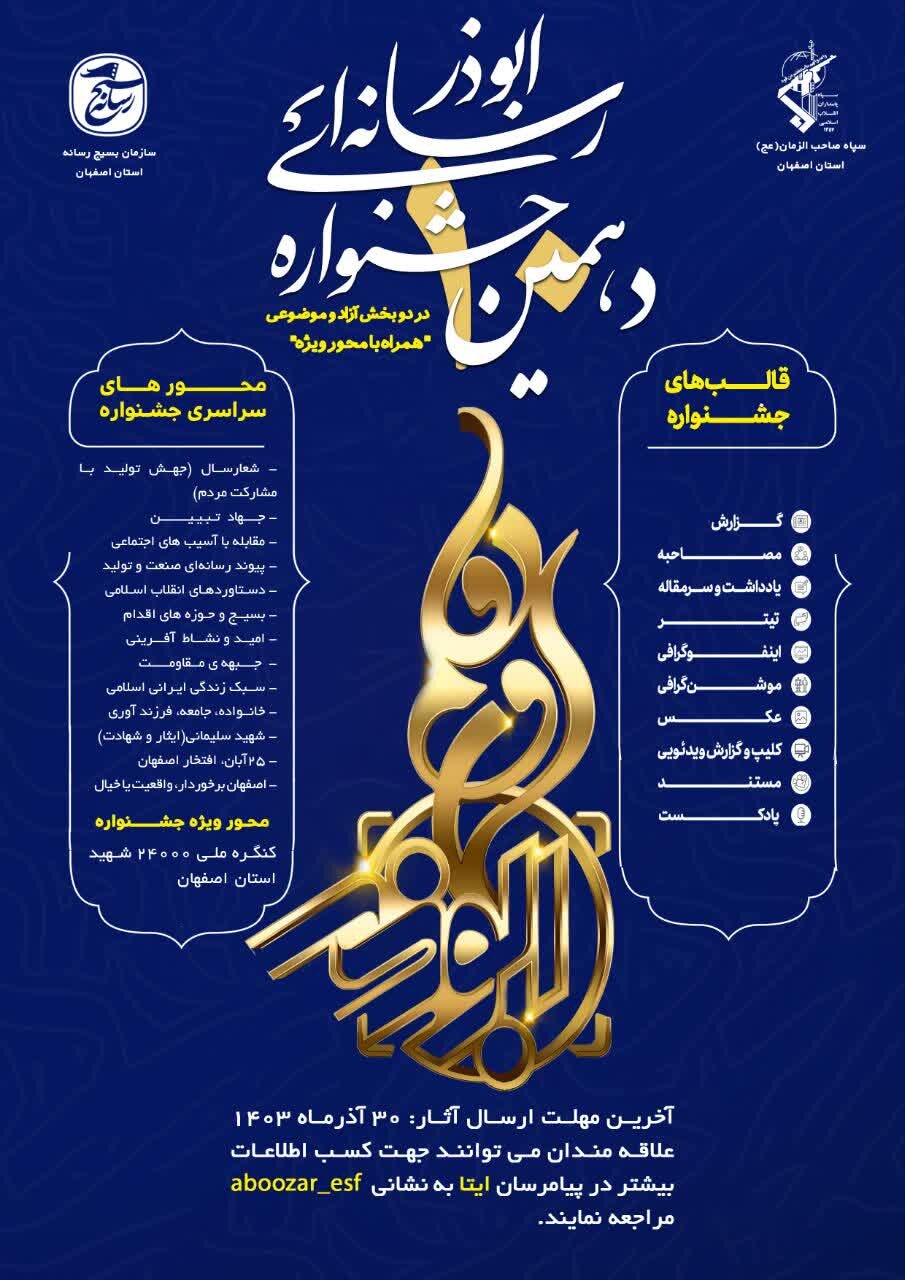 سپاه صاحب الزمان(عج)
استان اصفهان
رسانه
سازمان بسیج رسانه
استان اصفهان
دهمین جشنواره
رسانه‌ای
ابوذر
در دو بخش آزاد و موضوعی
"همراه با محور ویژه"
قالب‌های
جشنواره
گزارش
مصاحبه
یادداشت و سرمقاله
تیتر
اینفوگرافی
موشن‌گرافی
عکس
کلیپ و گزارش ویدئویی
مستند
پادکست
محور های
سراسری جشنواره
- شعارسال (جهش تولید با
مشارکت مردم)
- جهاد تبیین
- مقابله با آسیب های اجتماعی
- پیوند رسانه‌ای صنعت و تولید
- دستاوردهای انقلاب اسلامی
- بسیج و حوزه های اقدام
- امید و نشاط آفرینی
- جبهه ی مقاومت
- سبک زندگی ایرانی اسلامی
- خانواده، جامعه، فرزند آوری
- شهید سلیمانی(ایثار و شهادت)
- ۲۵آبان، افتخار اصفهان
- اصفهان برخوردار، واقعیت یا خیال
محور ویژه جشنواره
کنگره ملی ۲۴۰۰۰ شهید
استان اصفهان
آخرین مهلت ارسال آثار: ۳۰ آذرماه ۱۴۰۳
علاقه مندان می توانند جهت کسب اطلاعات
بیشتر در پیامرسان ایتا به نشانی aboozar_esf
مراجعه نمایند.